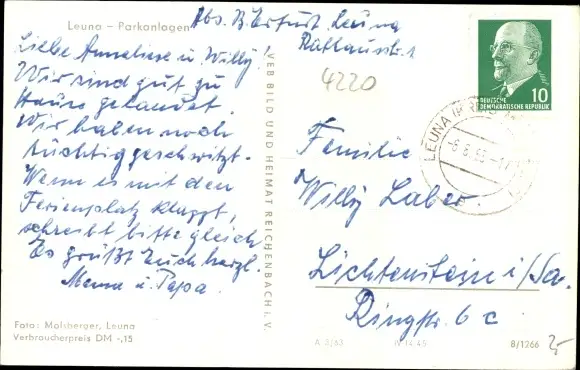 Leuna – Parkanlagen
Abs. B. Erfurt Leuna
Rathausstr. 1
Liebe Anneliese u. Willy!
Wir sind gut zu
Hause gelandet.
Wir haben noch
tüchtig geschwitzt.
Wenn es mit den
Ferienplatz klappt,
schreibt bitte gleich
Es grüßt Euch herzl.
Mama u. Papa.
VEB BILD UND HEIMAT REICHENBACH i. V.
4220
DEUTSCHE
DEMOKRATISCHE REPUBLIK
10
LEUNA
Familie
Willy Laber.
Lichtenstein i/Sa.
Ringstr. 6 c
Foto: Malsberger, Leuna
Verbraucherpreis DM -,15
A 3/63
IV-14-45
B/1266